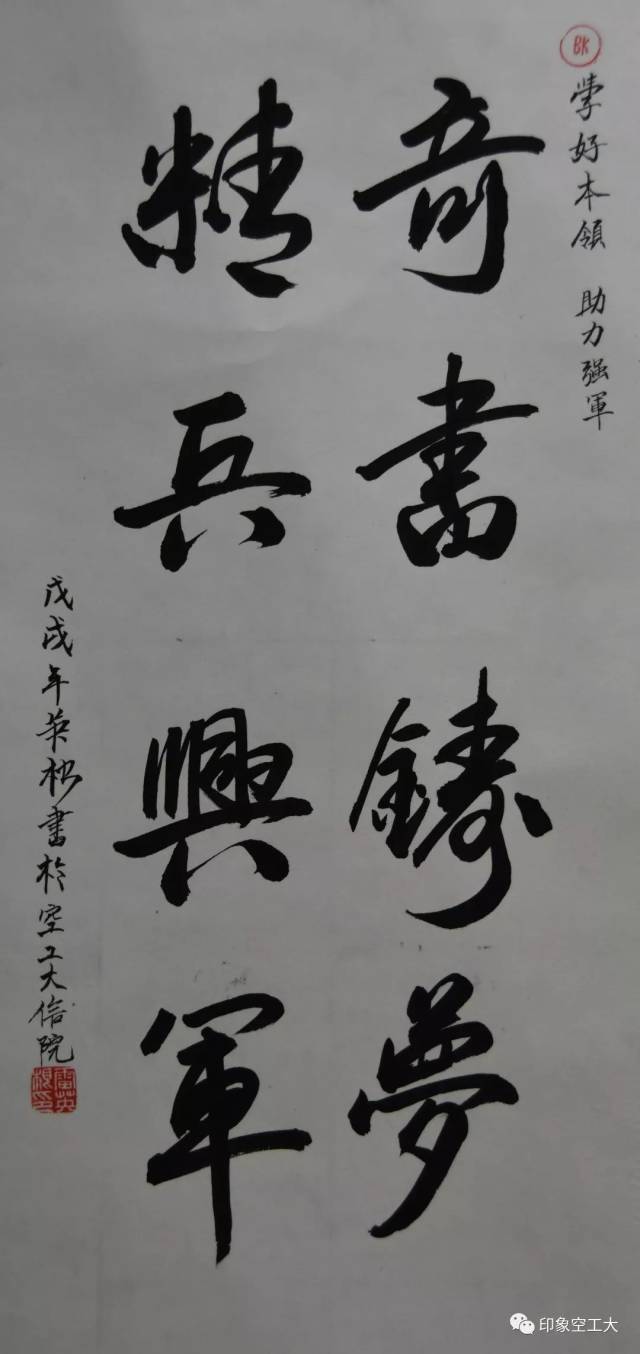 BK
學好本領 助力强軍
竒書鑄夢
精兵興軍
戊戌年英松書於空工大信院
印象空工大